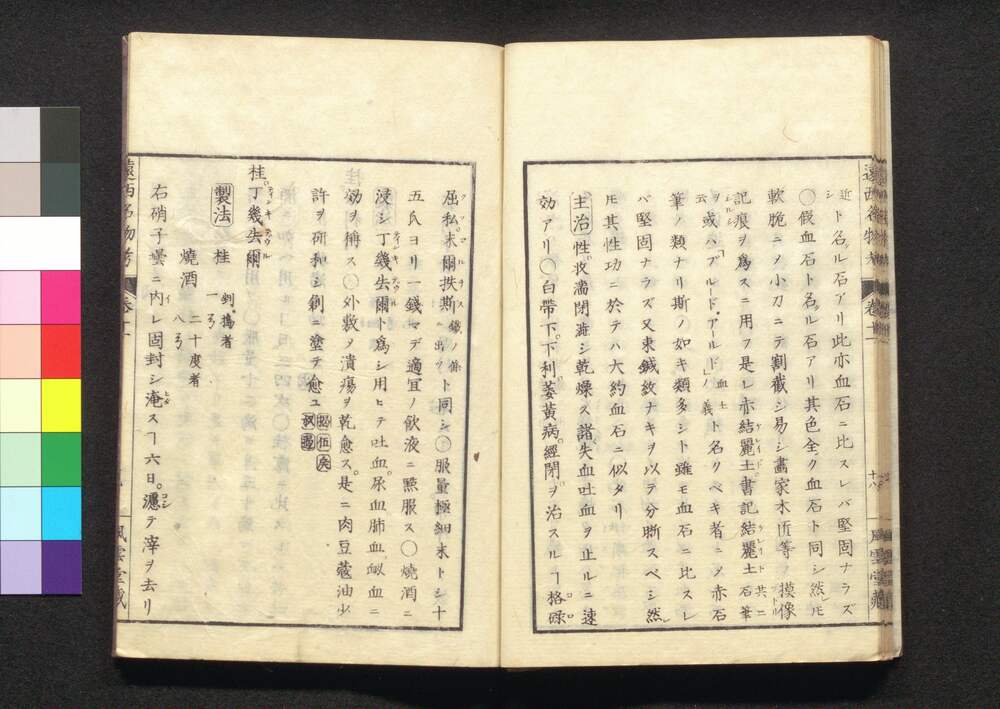 近シト名ル石アリ此亦血石ニ比スレバ堅固ナラズ
○假血石ト名ル石アリ其色全ク血石ト同シ然𪜈
軟脆ニメ小刀ニテ割截シ易シ畫家木匠等ノ摸像
記痕ヲ爲スニ用フ是レ赤結麗土書記結麗土石筆ト共ニ
云或ハブルードアルド血土ノ義ト名クベキ者ニメ赤石
筆ノ類ナリ斯ノ如キ類多シト雖モ血石ニ比スレ
バ堅固ナラズ又束鍼紋ナキヲ以テ分斷スベシ然レ
𪜈其性功ニ於テハ大約血石ニ似タリ
主治 性收濇閉澁シ乾燥ス諸失血吐血ヲ止ルニ速
効アリ○白帶下下利萎黃病經閉ヲ治スルヿ格碌
屈私末爾扶斯ト同シ○服量極細末トシ十
五氏ヨリ一錢マデ適宜ノ飲液ニ點服ス○燒酒ニ
浸シ丁幾去爾ト爲シ用ヒテ吐血尿血肺血衂血ニ
効ヲ稱ス○外敷ノ潰瘍ヲ乾愈ス是ニ肉豆蔻油少
許ヲ研和シ創ニ塗テ愈ユ
桂丁幾去爾
製法 桂 剉擣者 一
燒酒 二十度者 八
右硝子曇ニ内レ固封シ淹スヿ六日濾テ滓ヲ去リ
遠西名物考 卷十一
十八
風雲堂藏